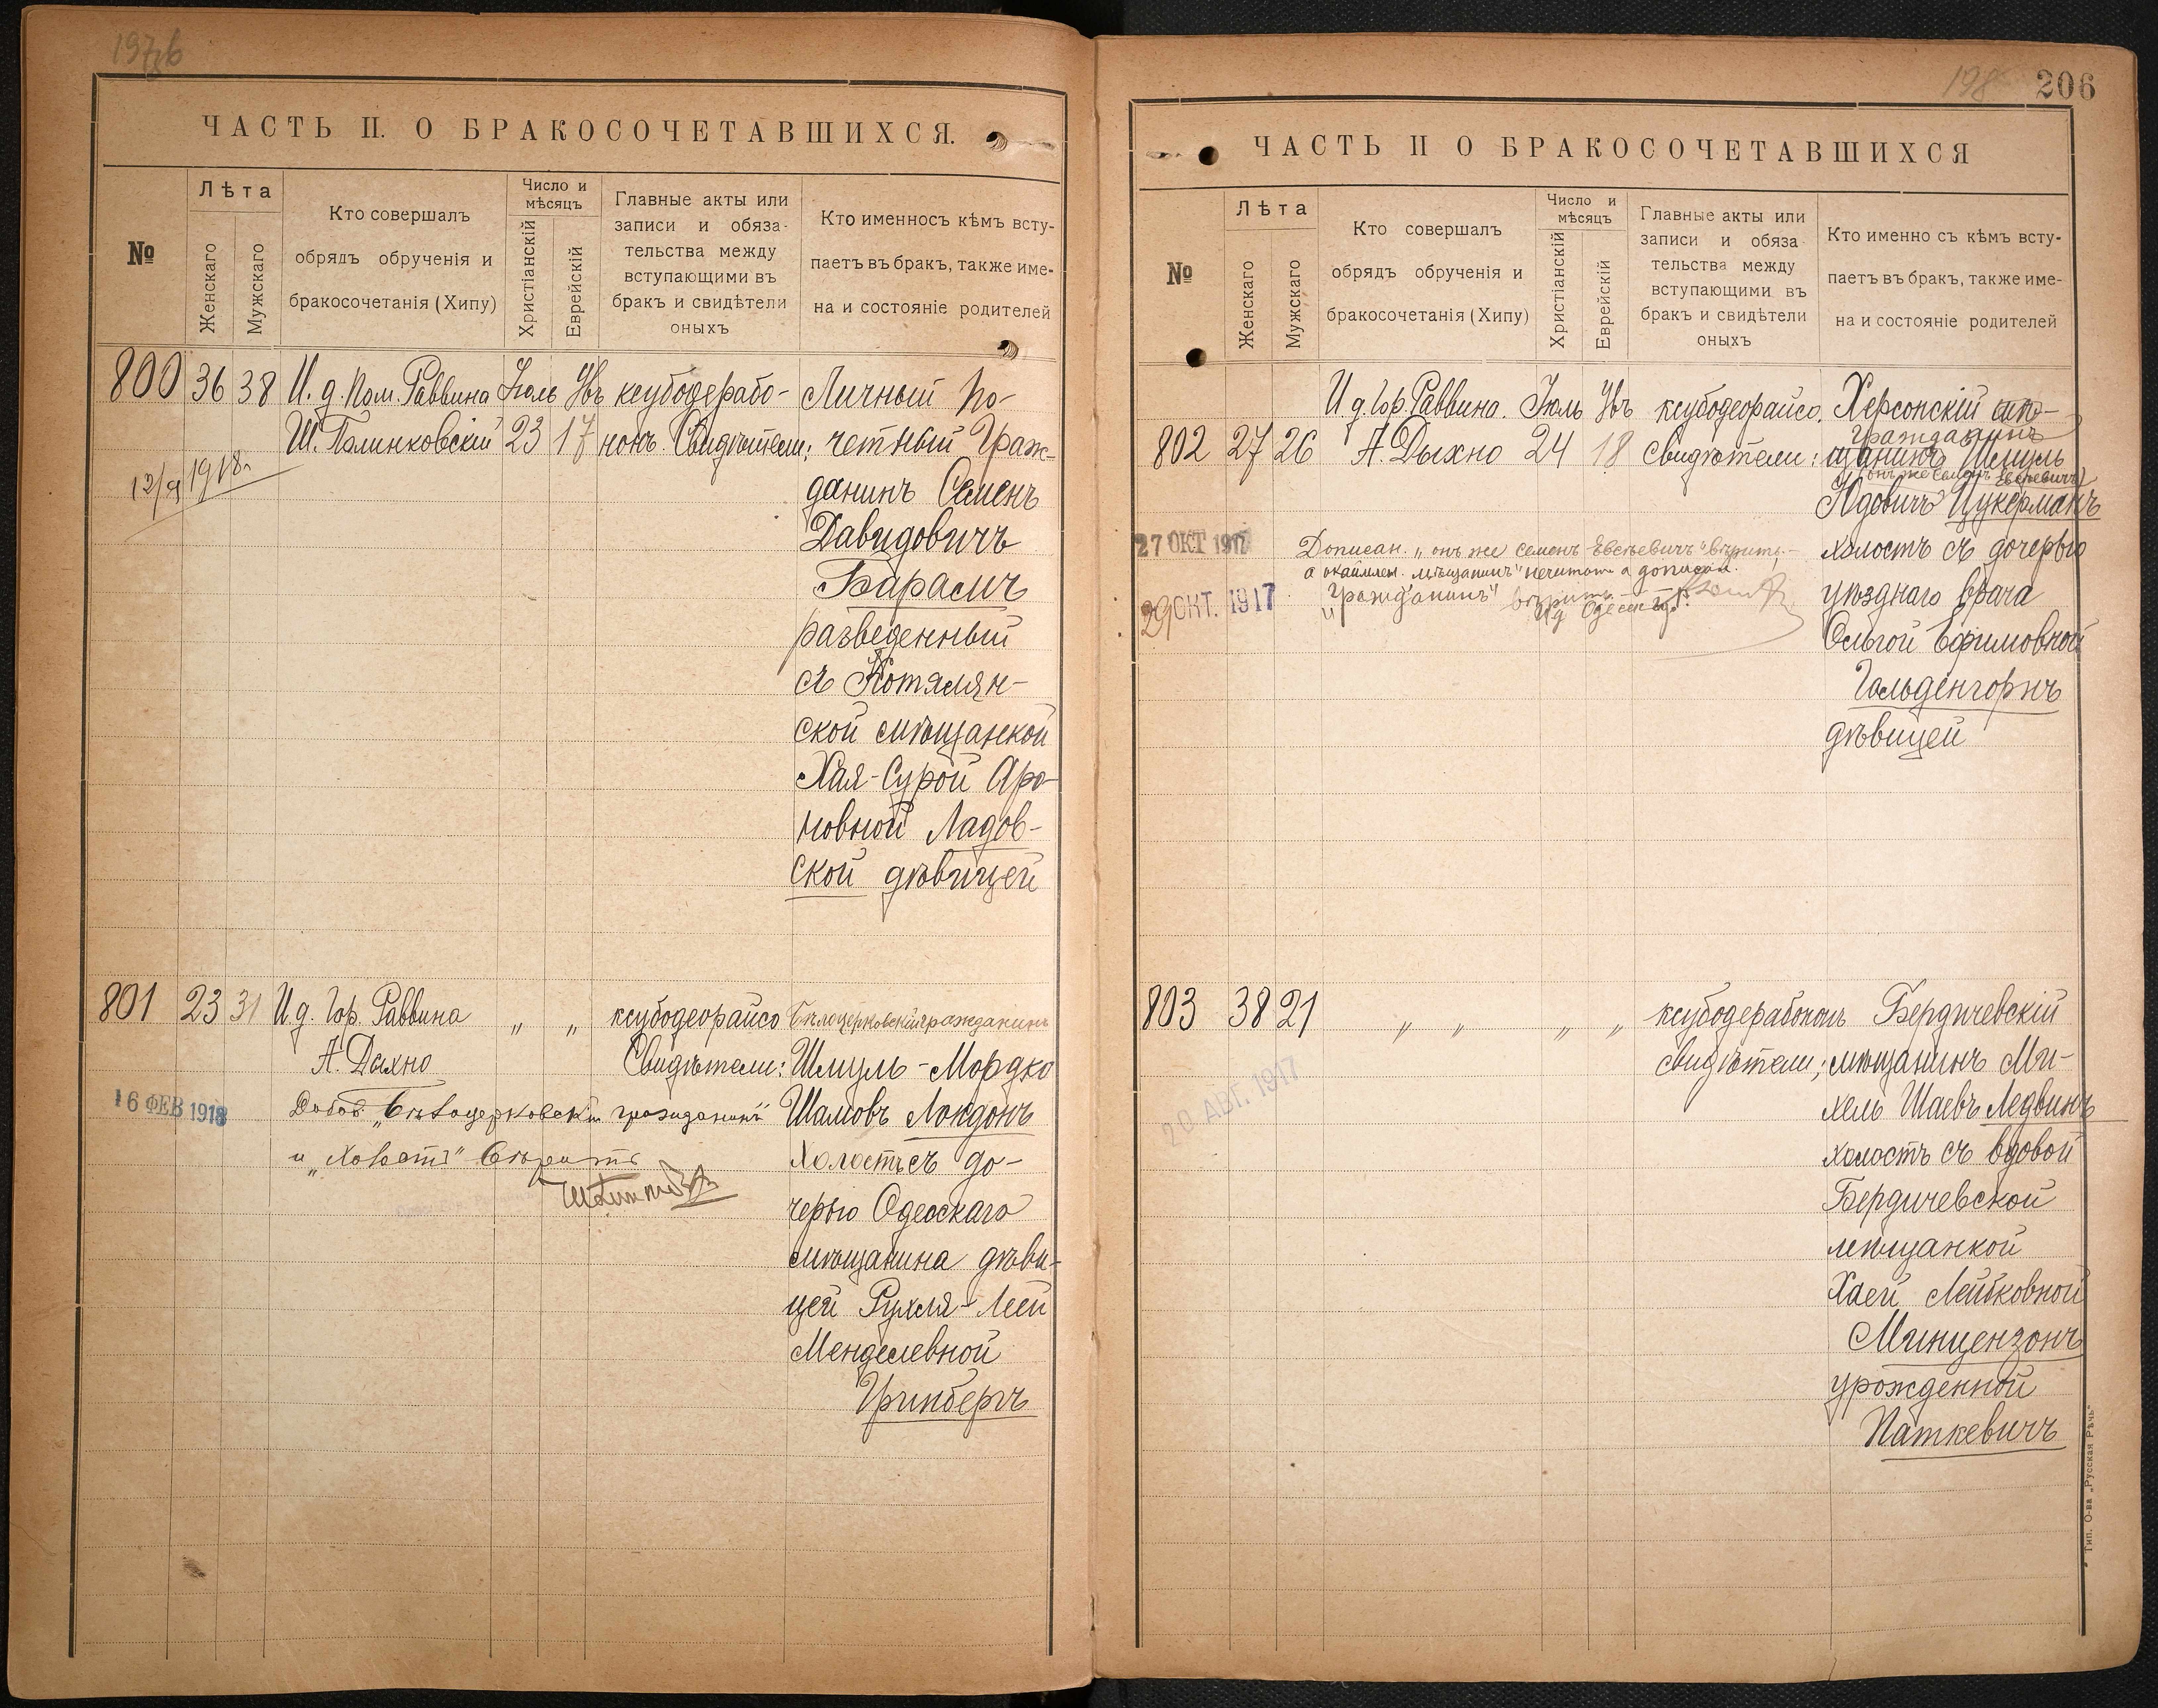 197б
ЧАСТЬ II. О БРАКОСОЧЕТАВШИХСЯ.
№
Лѣта
Женскаго
Мужскаго
Кто совершалъ
обрядъ обрученія и
бракосочетанія (Хипу)
Число и
мѣсяцъ
Христіанскій
Еврейскій
Главные акты или
записи и обяза-
тельства между
вступающими въ
бракъ и свидѣтели
оныхъ
Кто именносъ кѣмъ всту-
паетъ въ бракъ, также име-
на и состояніе родителей
800 36 38 И. д. Пом. Раввина Іюль Увъ ксубодерабо- Личный По-
Ш. Полинковскій 23 17 нонъ. Свидѣтели: четный Граж-
12/9 1918 г.
данинъ Семенъ
Давидовичъ
Барамъ
разведенный
съ Котелян-
ской мѣщанкой
Хая-Сурой Аро-
новной Ладов-
ской дѣвицей
801 23 31 И. д. Гор. Раввина „ „ ксубодеорайсо Бѣлоцерковскій гражданинъ
А. Дыхно Свидѣтели: Шмуль-Мордко
16 ФЕВ 1918 Добав. „Бѣлоцерковскій гражданинъ" Шамовъ Локдонъ
и „Холостъ" вѣрить Холостъ съ до-
черью Одесскаго
мѣщанина дѣви-
цей Рухля-Леей
Менделевной
Гринбергъ
198 206
ЧАСТЬ II О БРАКОСОЧЕТАВШИХСЯ
№
Лѣта
Женскаго
Мужскаго
Кто совершалъ
обрядъ обрученія и
бракосочетанія (Хипу)
Число и
мѣсяцъ
Христіанскій
Еврейскій
Главные акты или
записи и обяза-
тельства между
вступающими въ
бракъ и свидѣтели
оныхъ
Кто именно съ кѣмъ всту-
паетъ въ бракъ, также име-
на и состояніе родителей
И д. Гор. Раввина. Іюль Увъ ксубодеорайсо. Херсонскій мѣ-
гражданинъ
802 27 26 А. Дыхно 24 18 Свидѣтели: щанинъ Шмуль
(онъ же Семенъ Евсѣевичъ)
Цукерманъ
27 ОКТ 1917 Дописан. „онъ же Семенъ Евсѣевичъ" вѣрить,- холостъ съ дочерью
а окаймлен. „мѣщанинъ" нечитать а дописан.
29 ОКТ. 1917 „гражданинъ" вѣрить. уѣзднаго врача
Ольгой Ефимовной
Гольденгорнъ
дѣвицей
803 38 21 „ „ „ „ ксубодерабононъ Бердичевскій
свидѣтели; мѣщанинъ Ми-
20 АВГ. 1917 хель Шаевъ Ледвинъ
холостъ съ вдовой
Бердичевской
мѣщанкой
Хаей Лейбковной
Минцензонъ
урожденной
Паткевичъ
Тип. О-ва „Русская Рѣчь"